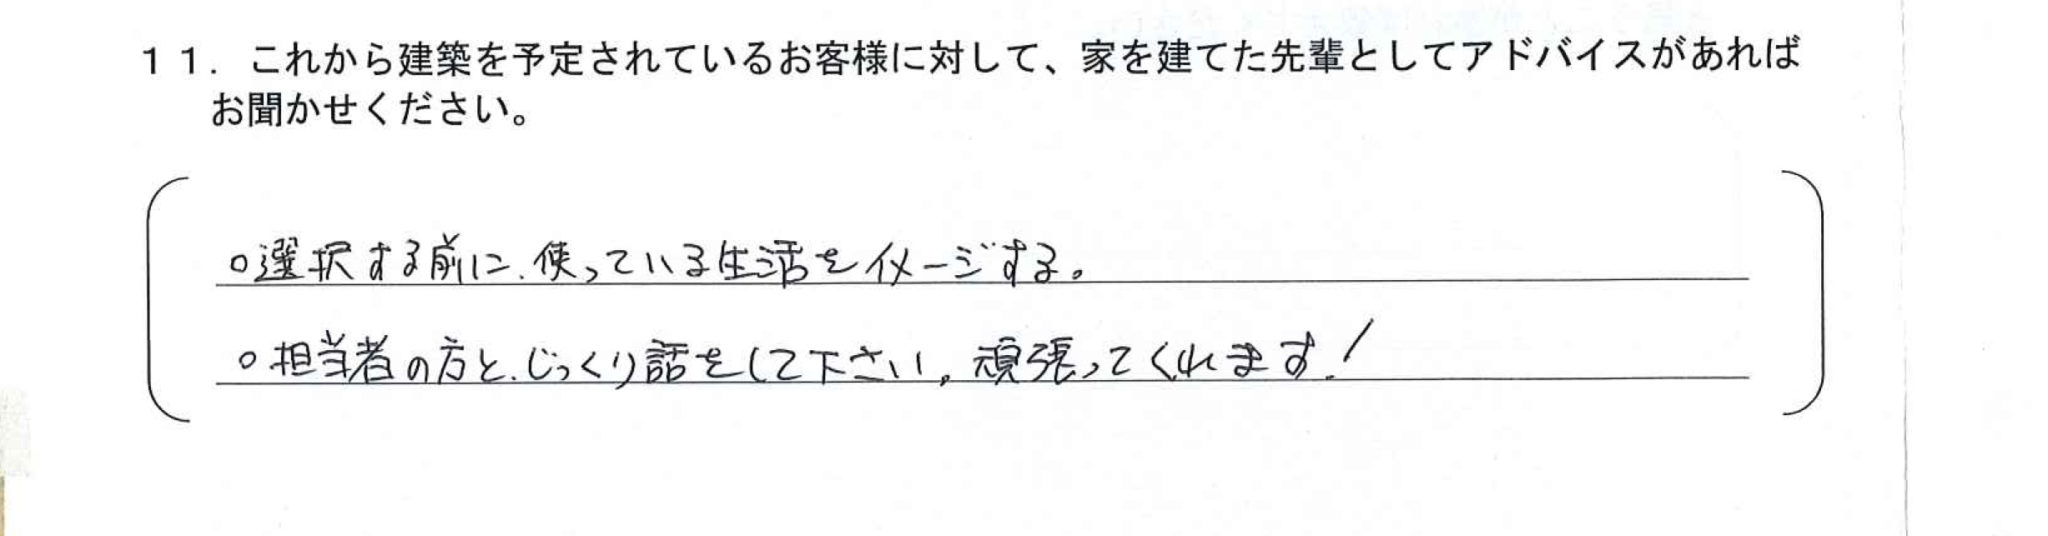 １１．これから建築を予定されているお客様に対して、家を建てた先輩としてアドバイスがあれば
お聞かせください。
○選択する前に、使っている生活をイメージする。
○担当者の方と、じっくり話をして下さい。頑張ってくれます！